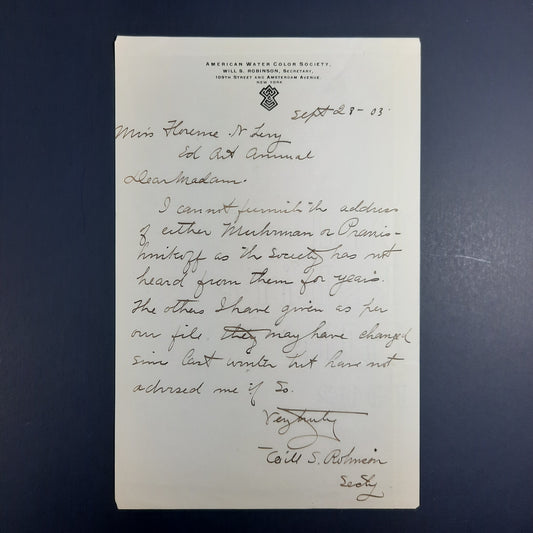 AMERICAN WATER COLOR SOCIETY,
WILL S. ROBINSON, SECRETARY,
109TH STREET AND AMSTERDAM AVENUE.
NEW YORK
Sept 28 - 03.
Miss Florence N Levy
Ed Art Annual
Dear Madam.
I cannot furnish th address
of either Muhrman or Pranish-
nikoff as th Society has not
heard from them for years.
The others I have given as per
our file. they may have changed
since last winter but have not
advised me if so.
Very truly
Will S. Robinson
Secty